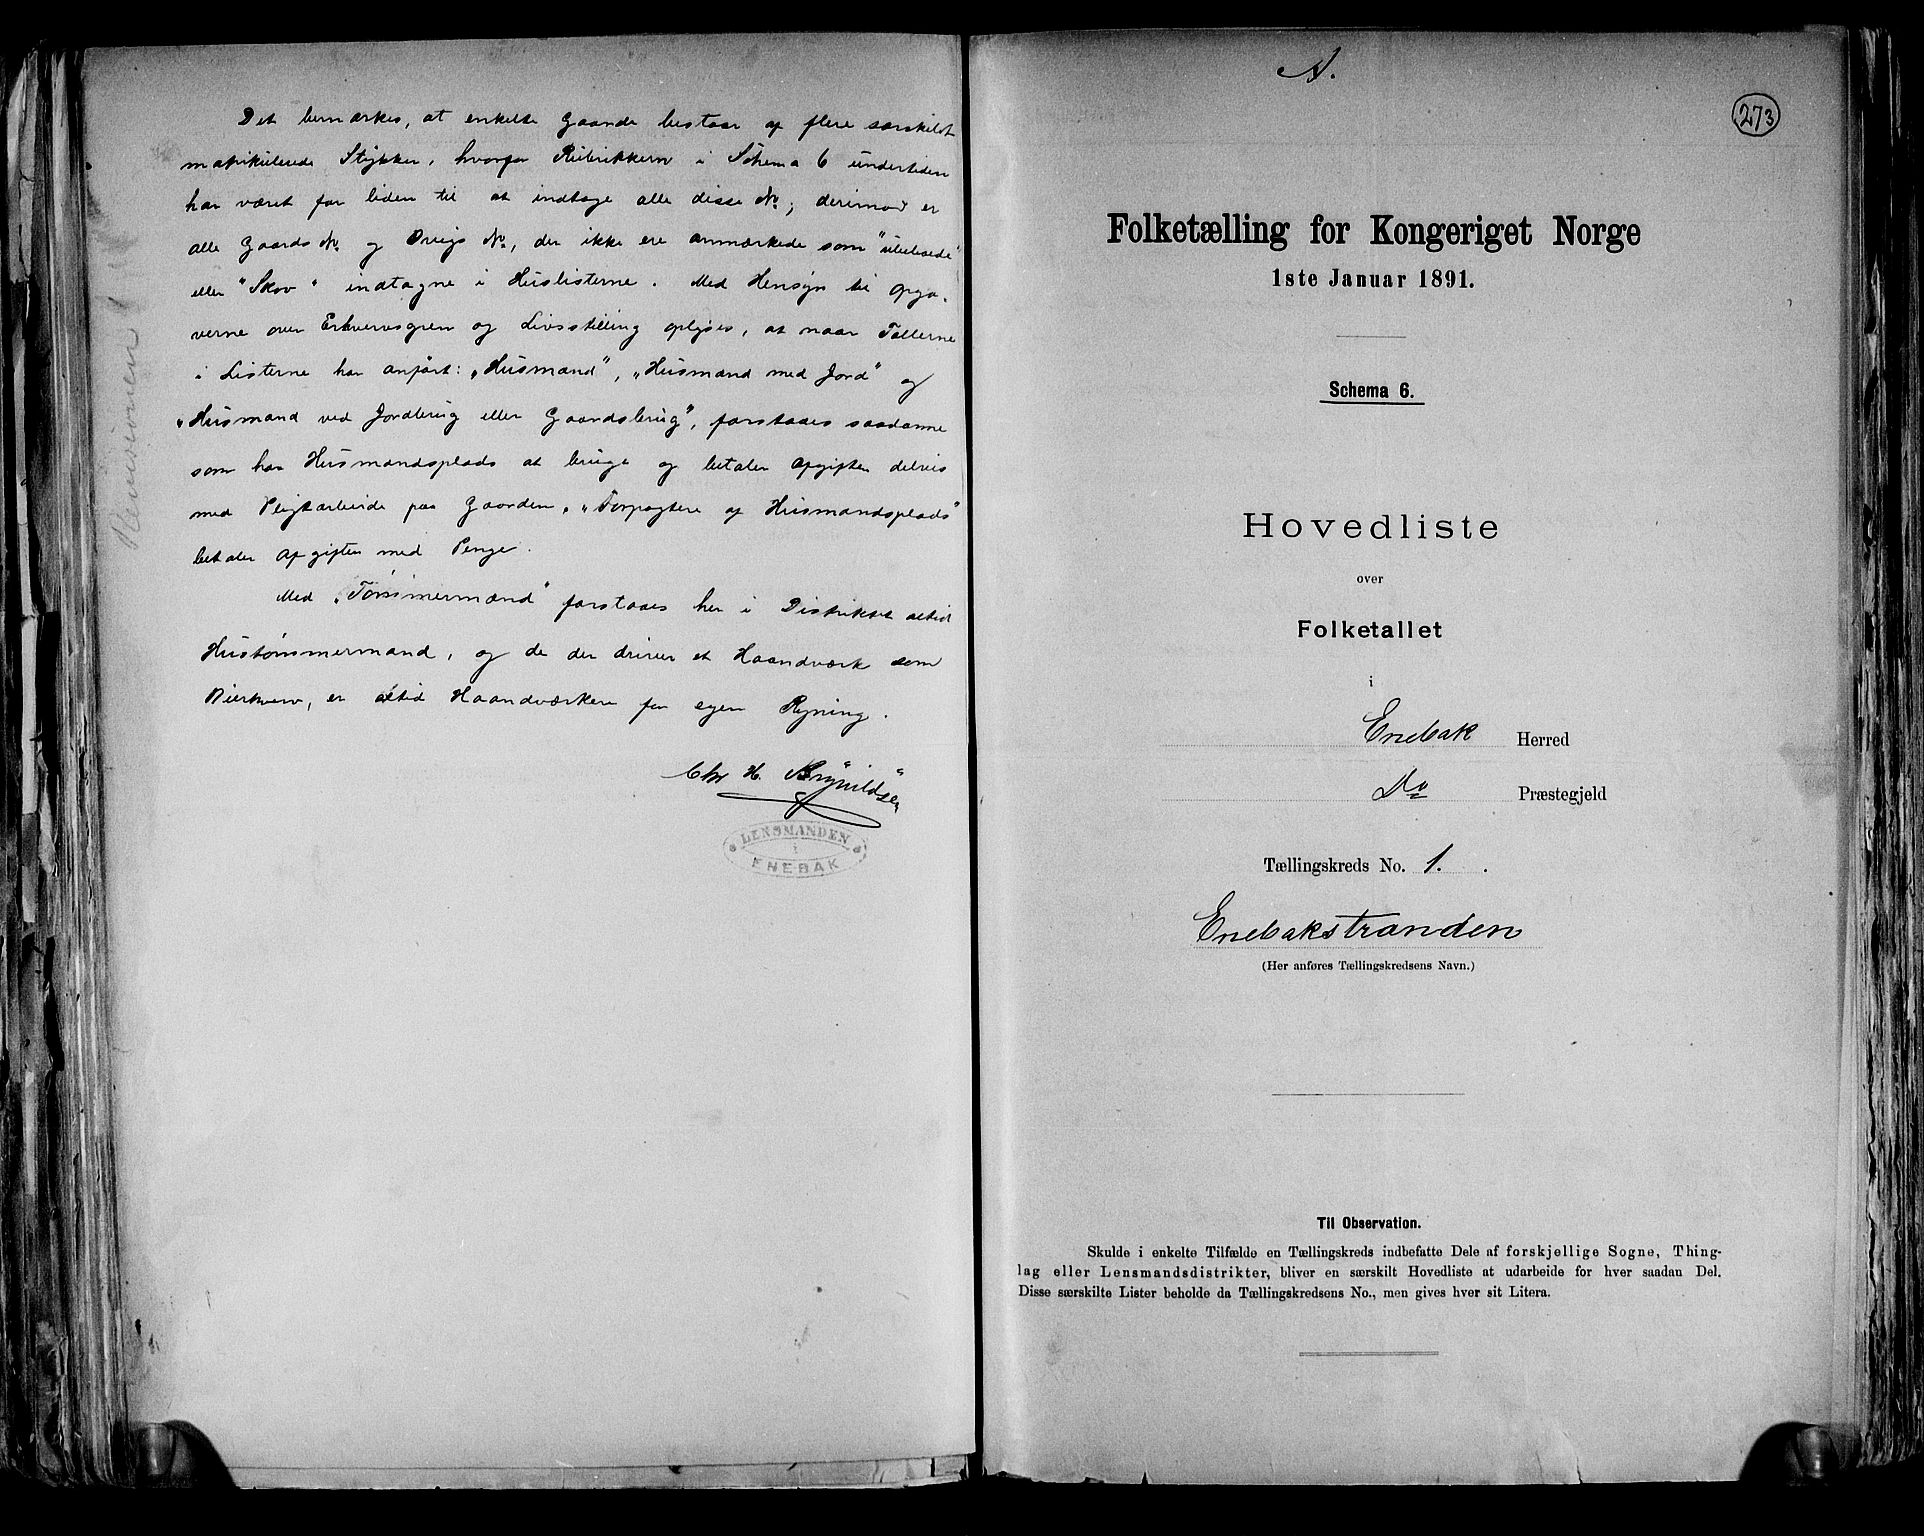 Det bemærkes, at enkelte Gaarde bestaar af flere særskilt
matrikulerede Stykker, hvorfor Rubrikkern i Schema 6 undertiden
har været for liden til at indtage alle disse No; derimod er
alle Gaards No og Brugs No, der ikke ere anmærkede som "ubeboede"
eller "Skov" indtagne i Huslisterne. Med Hensyn til Opga-
verne over Erhvervsgren og Livsstilling oplyses, at naar Tællerne
i Listerne har anført: „Husmand", „Husmand med Jord" og
„Husmand ved Jordbrug eller Gaardsbrug", forstaaes saadanne
som har Husmandsplads at bruge og betaler Afgiften delvis
med Pligtarbeide paa Gaarden. „Forpagtere af Husmandsplads"
betaler Afgiften med Penge.
Med „Tømmermænd" forstaaes her i Distriktet altid
Hustømmermænd, og de der driver et Haandværk som
Bierhverv, er altid Haandværkere for egen Regning.
Chr H. Brynildsen
LENSMANDEN
i
ENEBAK
Revisionen
N.
273
Folketælling for Kongeriget Norge
1ste Januar 1891.
Schema 6.
Hovedliste
over
Folketallet
i
Enebak Herred
Do Præstegjeld
Tællingskreds No. 1.
Enebakstranden
(Her anføres Tællingskredsens Navn.)
Til Observation.
Skulde i enkelte Tilfælde en Tællingskreds indbefatte Dele af forskjellige Sogne, Thing-
lag eller Lensmandsdistrikter, bliver en særskilt Hovedliste at udarbeide for hver saadan Del.
Disse særskilte Lister beholde da Tællingskredsens No., men gives hver sit Litera.